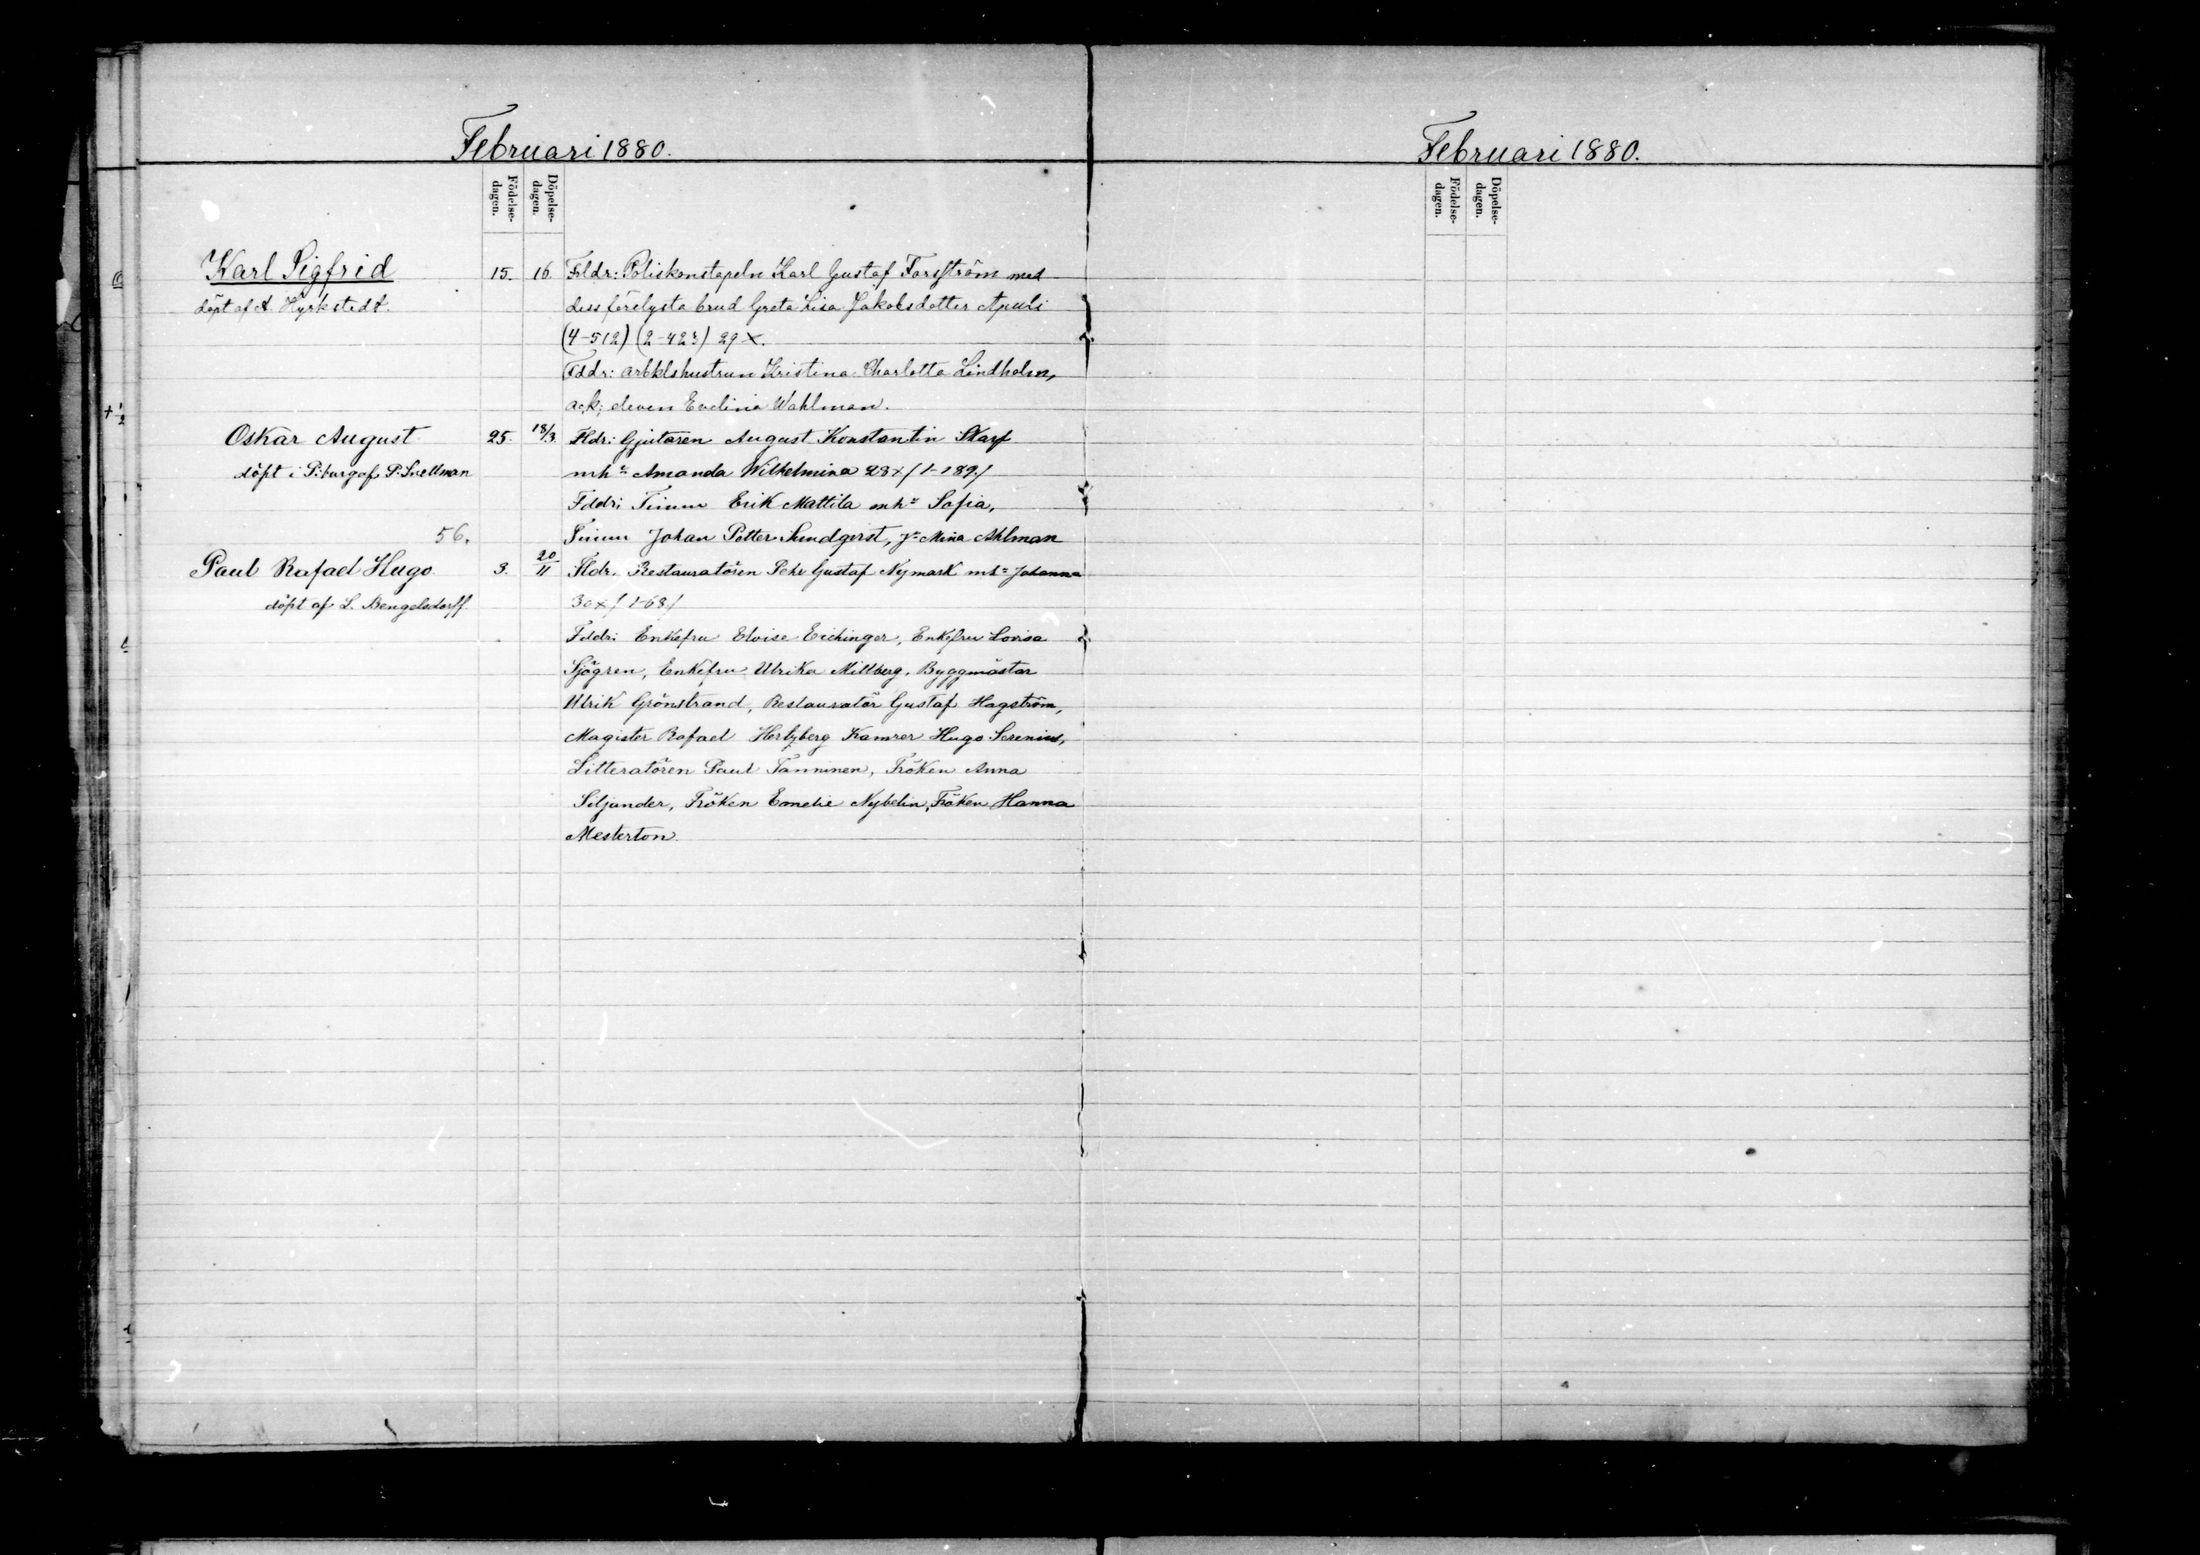 Februari 1880.
Födelse-
dagen.
Döpelse-
dagen.
Karl Sigfrid 15. 16. Frldr: Poliskonstapeln Karl Gustaf Forsström med
döpt af A. Hyrkstedt. dess förelysta brud Greta Lisa Jakobsdotter Apuli
(4-512) (2-423) 29 x.
Fddr: arbklshustrun Kristina Charlotta Lindholm,
ack; eleven Evelina Wahlman.
Oskar August 25. 18/3. Fldr: Gjutaren August Konstantin Skarf
döpt i P:burg af P. Snellman mh: Amanda Wilhelmina 28 x / 1-189./
Fddr: Timm Erik Mattila mh: Sofia,
56. Timm Johan Petter Sundqvist, J: Mina Ahlman
Paul Rafael Hugo. 3. 20/11 Fldr. Restauratören Pehr Gustaf Nymark mh: Johanna
döpt af L. Bengelsdorff. 30 x / 1-68/
Fddr: Enkefru Eloise Eichinger, Enkefru Lovisa
Sjögren, Enkefru Ulrika Millberg, Byggmästar
Ulrik Grönstrand, Restauratör Gustaf Hagström,
Magister Rafael Hertzberg Kamrer Hugo Serenius,
Litteratören Paul Tanninen, Fröken Anna
Siljander, Fröken Emelie Nybelin, Fröken Hanna
Mesterton.
Februari 1880.
Födelse-
dagen.
Döpelse-
dagen.